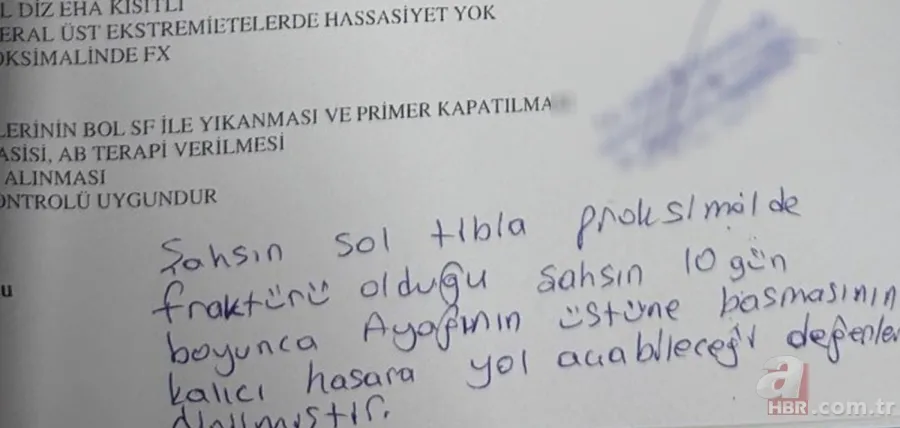 L DİZ EHA KISITLI
ERAL ÜST EKSTREMİETELERDE HASSASİYET YOK
OKSİMALİNDE FX
LERİNİN BOL SF İLE YIKANMASI VE PRİMER KAPATILMA
ASİSİ, AB TERAPİ VERİLMESİ
ALINMASI
ONTROLÜ UYGUNDUR
u
Şahsın sol tibia proksimalde
fraktürü olduğu şahsın 10 gün
boyunca Ayağının üstüne basmasının
kalıcı hasara yol açabileceği değerlen
dirilmiştir.
a
HBR.com.tr